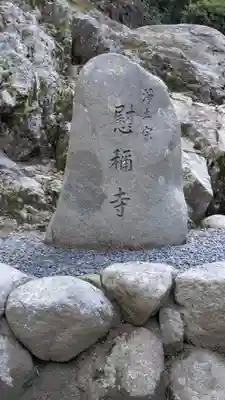 浄土宗
慰福寺